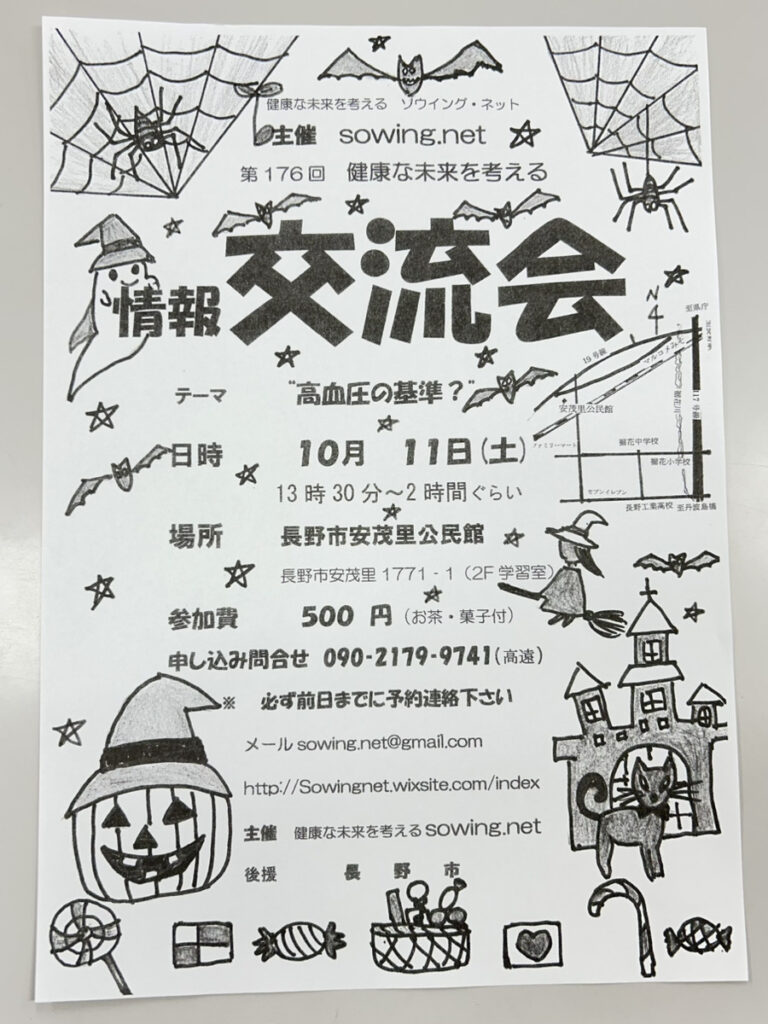 健康な未来を考える ソウイング・ネット
主催 sowing.net
第176回 健康な未来を考える
情報 交流会
テーマ "高血圧の基準?"
日時 10月 11日(土)
13時30分~2時間ぐらい
場所 長野市安茂里公民館
長野市安茂里1771-1(2F 学習室)
参加費 500 円(お茶・菓子付)
申し込み問合せ 090-2179-9741(高遠)
※ 必ず前日までに予約連絡下さい
メール sowing.net@gmail.com
http://Sowingnet.wixsite.com/index
主催 健康な未来を考える sowing.net
後援 長野市
N
至県庁
19号線
マルコメみそ
安茂里公民館
裾花川
117号線
ファミリーマート
裾花中学校
裾花小学校
セブンイレブン
長野工業高校
至丹波島橋